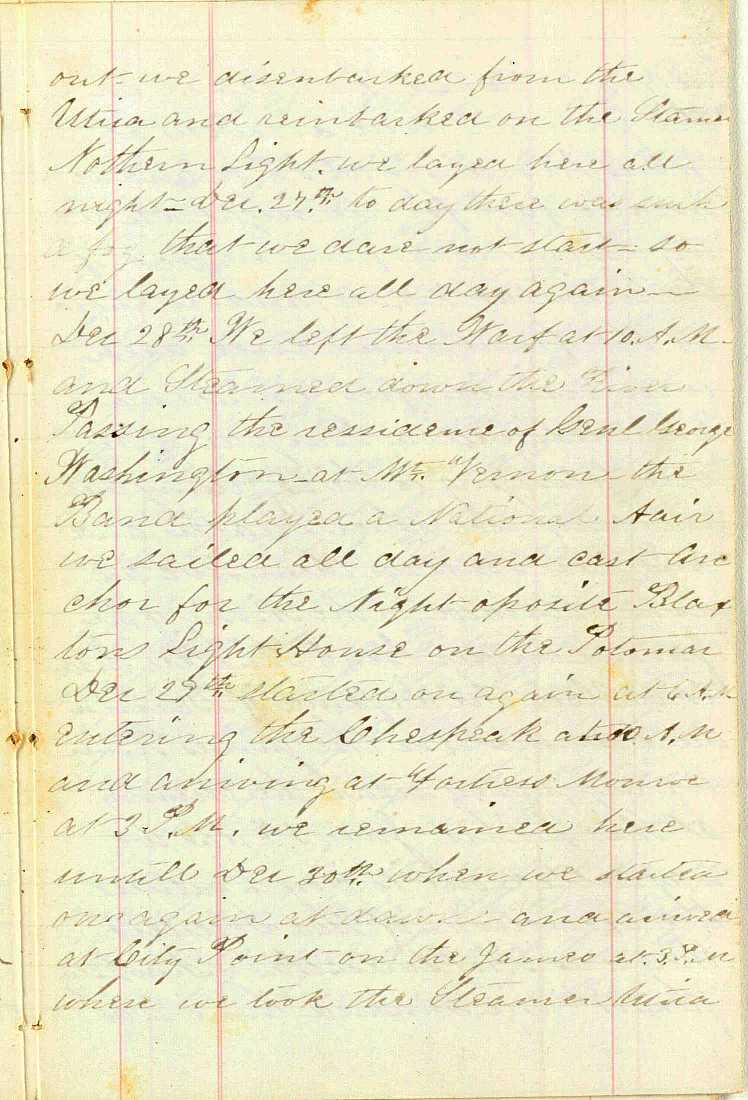 out we disenbarked from the
Utica and reinbarked on the Stamer
Nothern Light. we layed here all
night - Dec. 27th. to day there was such
a fog that we dare not start - so
we layed here all day again -
Dec 28th. We left the Warf at 10. A. M.
and Steamed down the River
Passing the ressidence of Genl George
Washington - at Mt. Vernon the
Band played a National Aair
we sailed all day and cast An
chor for the Night oposite Blax
tons Light House on the Potomac
Dec 29th. started on again at 6 A. M
entering the Chespeak at 10 A. M
and ariving at Fortress Monroe
at 3 P. M. we remained here
untill Dec 30th. when we started
on again at dawn and arived
at City Point on the James at. 3. P. M
where we took the Steamer Utica